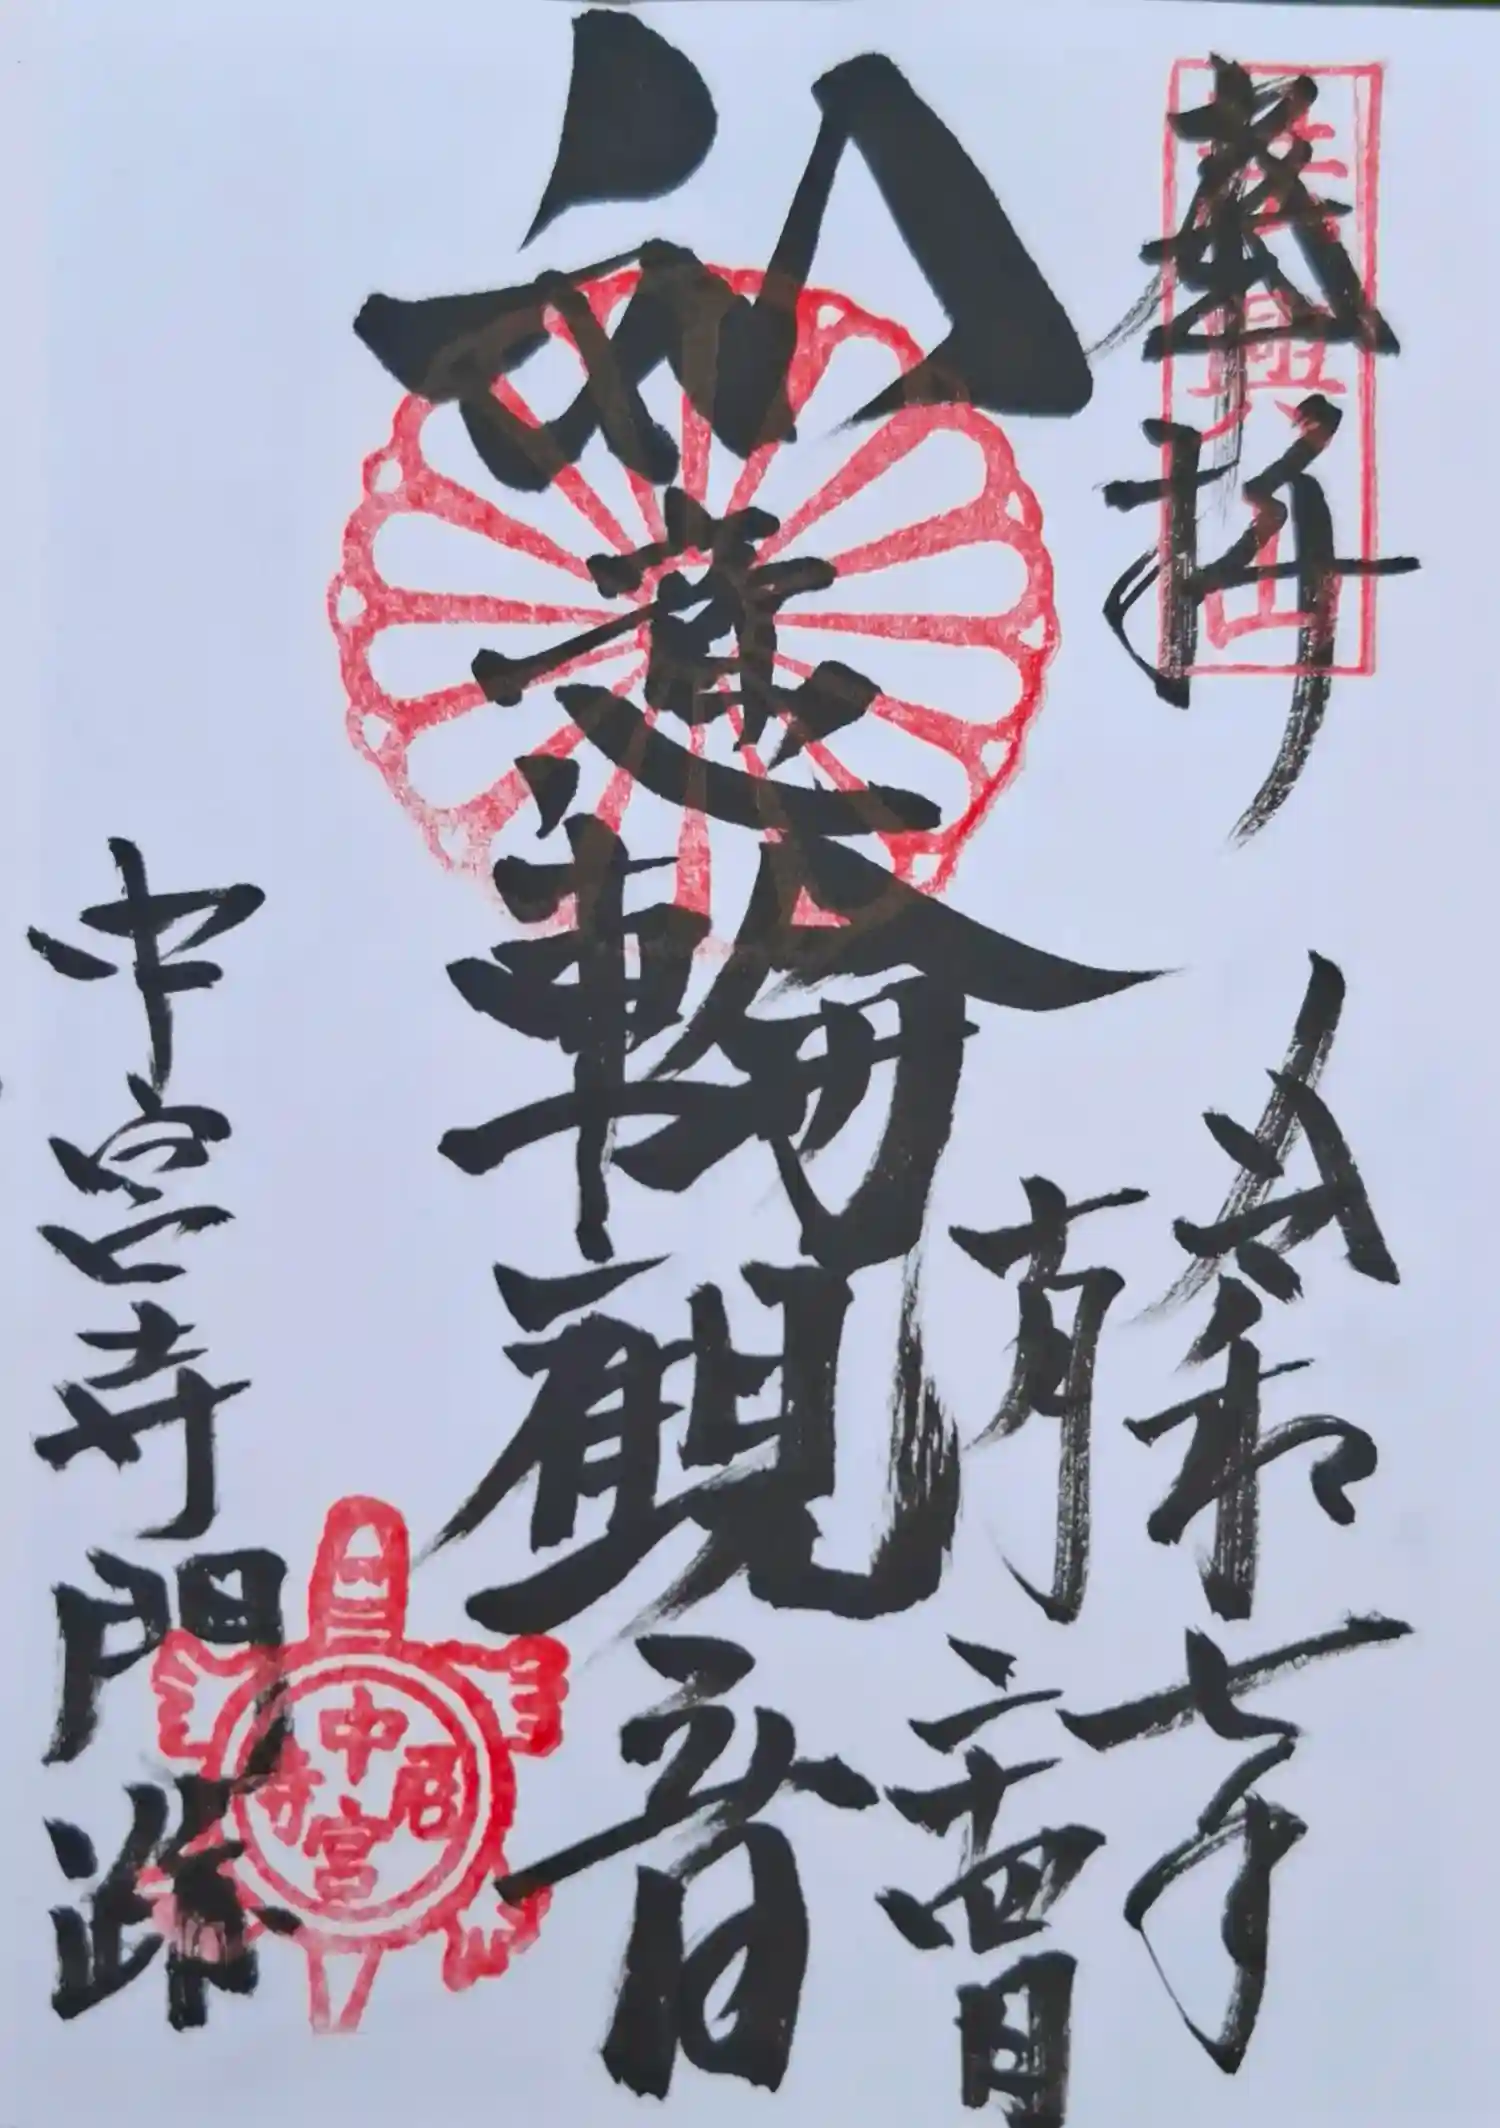 奉拝
法興山
令和七年
十月二十四日
如意輪觀音
中宮寺門跡
中宮寺